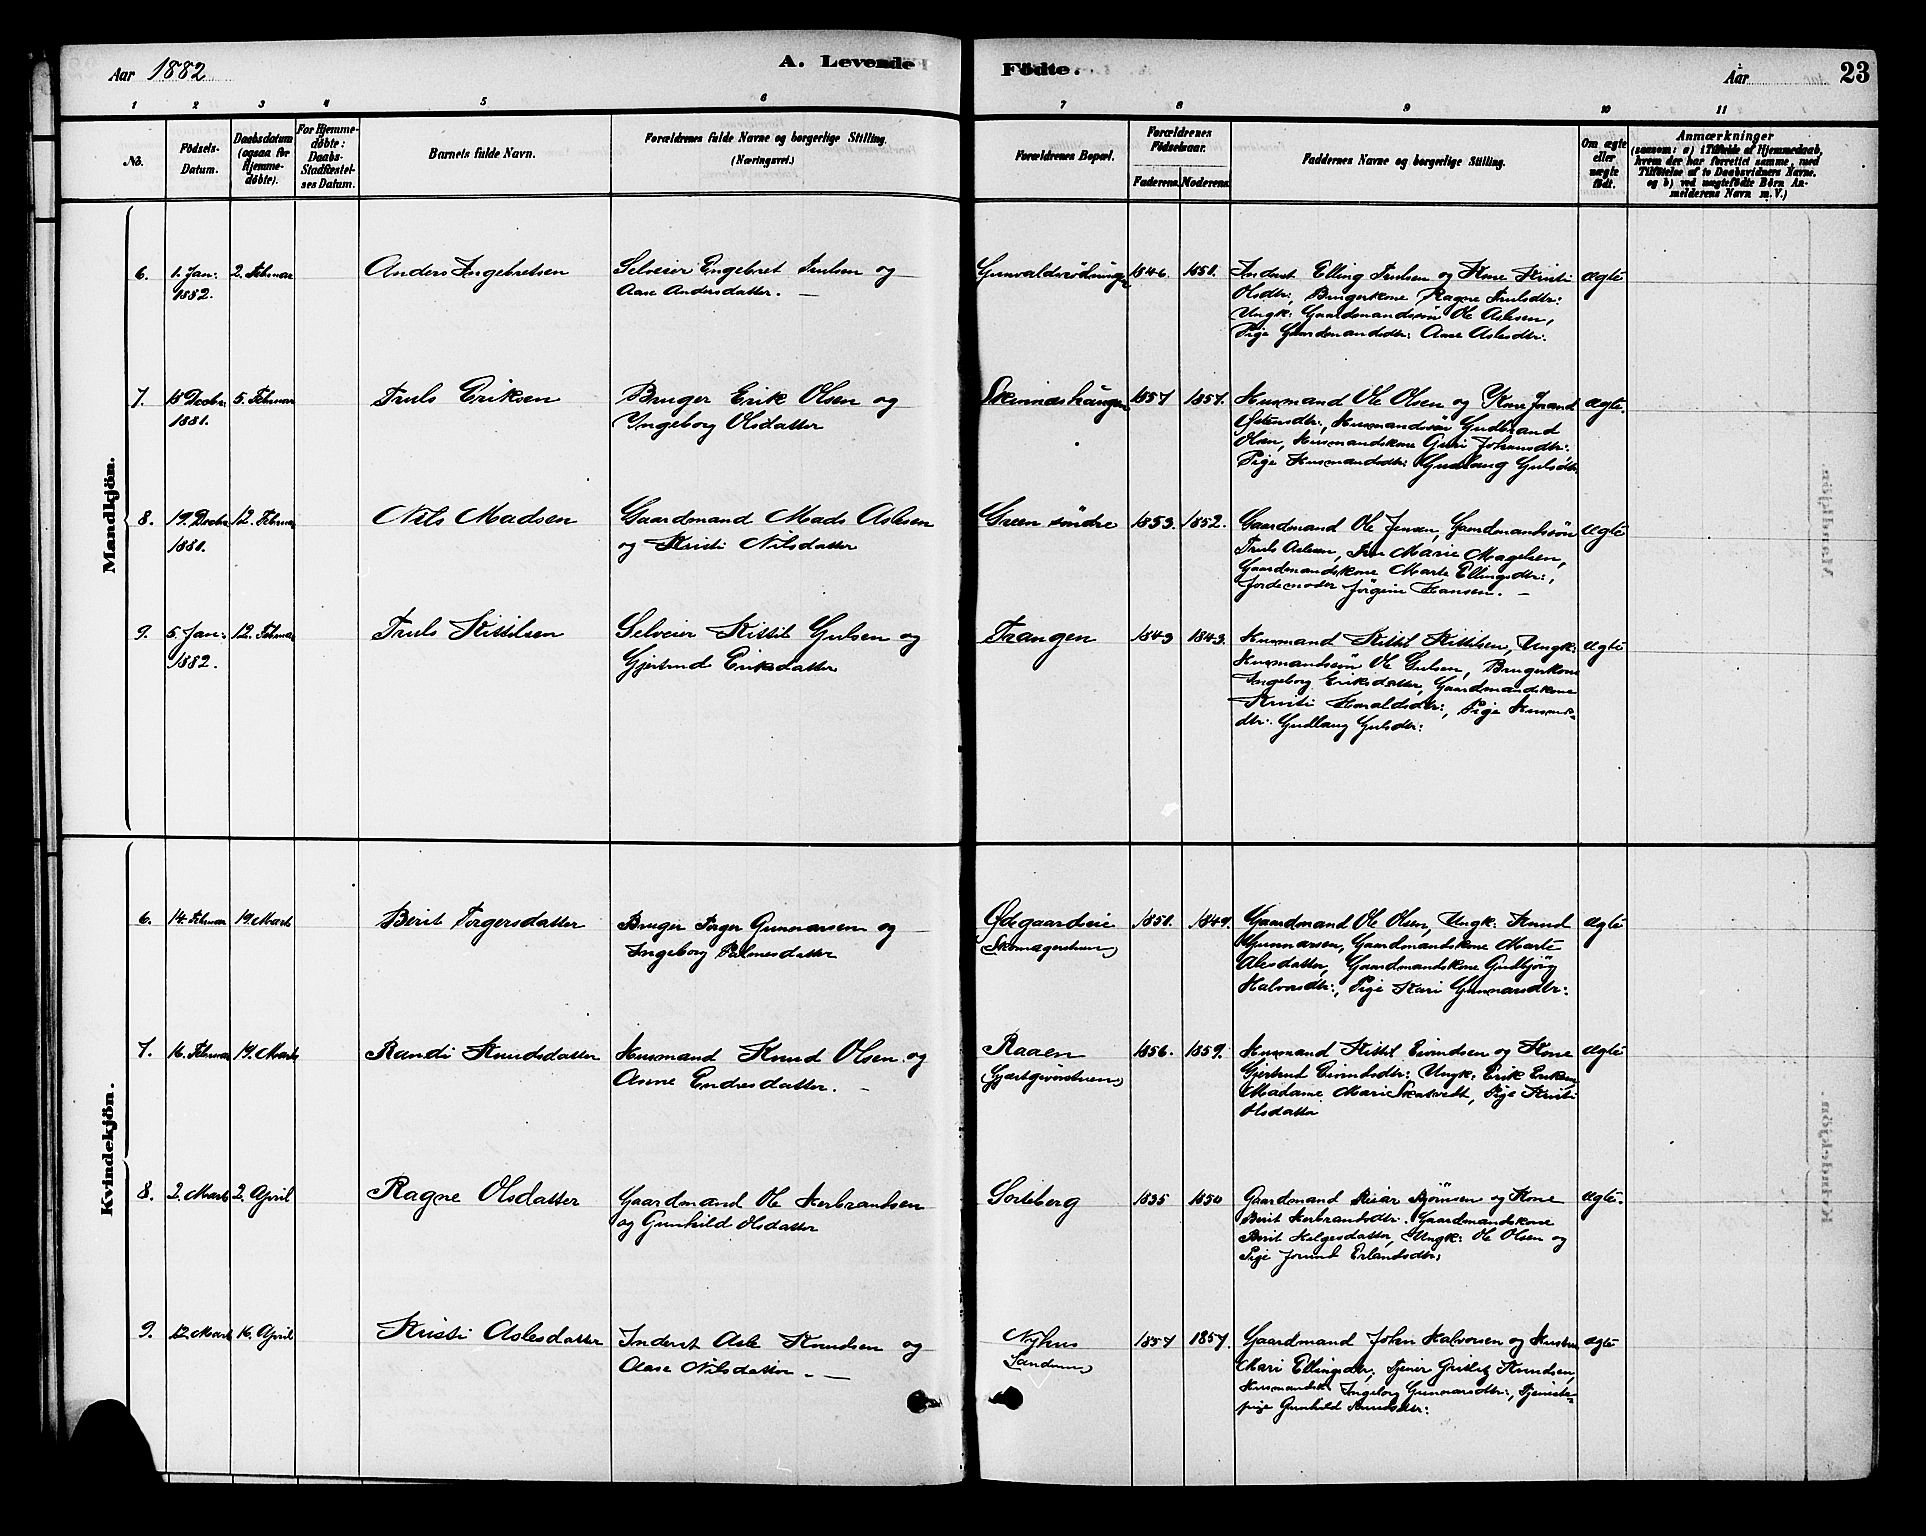 Aar 1882
A. Levende
Födte.
Aar
23
1
2
3
4
5
6
7
8
9
10
11
No.
Födsels-
Datum.
Daabsdatum
(ogsaa for
Hjemme-
döbte).
For Hjemme-
döbte:
Daabs-
Stadfæstel-
ses Datum.
Barnets fulde Navn.
Forældrenes fulde Navne og borgerlige Stilling.
(Næringsvei.)
Forældrenes Bopæl.
Forældrenes
Födselsaar.
Faderens.
Moderens.
Faddernes Navne og borgerlige Stilling.
Om ægte
eller
uægte
födt.
Anmærkninger
(saasom: a) i Tilfælde af Hjemmedaab,
hvem der har forrettet samme, med
Tilföielse af to Daabsvidners Navne,
og b) ved uægtefödte Börn An-
melderens Navn m.V.)
Mandkjön.
6.
1. Jan:
1882.
2. Februar
Anders Ingebretsen
Selveier Engebret Trulsen og
Aase Andersdatter. —
1846.
1851.
Inderst Elling Trulsen og Kone Kristi
Olsdtr:, Brugerkone Ragne Trulsdtr:
Ungk: Gaardmandssön Ole Aslesen,
Pige Gaardmandsdtr: Aase Aslesdtr:
ægte
7.
15 Decbr:
1881.
5. Februar
Truls Eriksen
Bruger Erik Olsen og
Ingeborg Olsdatter
1857
1857.
Husmand Ole Olsen og Kone Jorand
Husmandssön Gudbrand
Olsen, Husmandskone Guri Johansdtr:
Pige Husmandsdtr: Gudlaug Gulsdtr
ægte.
8.
19. Decbr
1881.
12. Februar
Nils Madsen
Gaardmand Mads Aslesen
og Kristi Nilsdatter
Green söndre
1853.
1852.
Gaardmand Ole Jensen, Gaardmandssön
Truls Aslesen, Fru Marie Magelsen,
Gaardmandskone Marte Ellingsdtr:,
Jordemoder Jörgine Hansen. —
ægte
9.
5. Jan:
1882.
12. Februar
Truls Kittilsen
Selveier Kittil Gulsen og
Gjertrud Eriksdatter
Trangen
1843
1843.
Husmand Kittil Kittilsen, Ungk:
Husmandssön Ole Gulsen, Brugerkone
Ingeborg Eriksdatter, Gaardmandskone
Kristi Haraldsdtr:, Pige Husmds-
dtr: Gudlaug Gulsdtr:
ægte
Kvindekjön.
6.
14. Februar
19. Marts
Berit Torgersdatter
Bruger Torger Gunnarsen og
Ingeborg Palmesdatter
Ødegaardseie
1851.
1849.
Gaardmand Ole Olsen, Ungk: Knud
Gunnarsen, Gaardmandskone Marte
Gaardmandskone Gudbjörg
Halvorsdtr:, Pige Kari Gunnarsdtr:
ægte
7.
16. Februar
19. Marts
Randi Knudsdatter
Husmand Knud Olsen og
Anne Endresdatter. —
Raaen
1856.
1859.
Husmand Kittil Eivindsen og Kone
Gjertrud Eivindsdtr: Ungk: Erik Eriksen,
Madame Marie Skatvedt, Pige Kristi
Olsdatter
ægte
8.
2. Marts
2. April
Ragne Olsdatter
Gaardmand Ole Herbrandsen
og Gunhild Olsdatter
Sorteberg
1835
1850
Gaardmand Reiar Björnsen og Kone
Berit Herbrandsdtr: Gaardmandskone
Berit Helgesdatter, Ungk: Ole Olsen og
Pige Jorund Erlandsdtr:
ægte.
9.
12. Marts
16. April
Kristi Aslesdatter
Inderst Asle Knudsen og
Aase Nilsdatter. —
Nyhus
1857
1857.
Gaardmand John Halvorsen og Hustru
Mari Ellingsdtr, Tjener Gulleik Knudsen,
Ingeborg Gunnarsdtr:, Tjeneste-
pige Gunhild Knudsdtr:
ægte